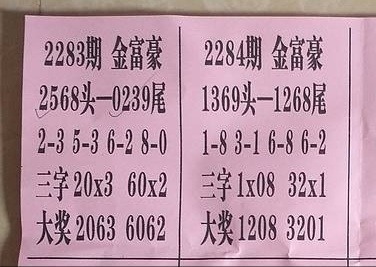 2283期 金富豪
2568头—0239尾
2-3 5-3 6-2 8-0
三字 20x3 60x2
大奖 2063 6062
2284期 金富豪
1369头—1268尾
1-8 3-1 6-8 6-2
三字 1x08 32x1
大奖 1208 3201